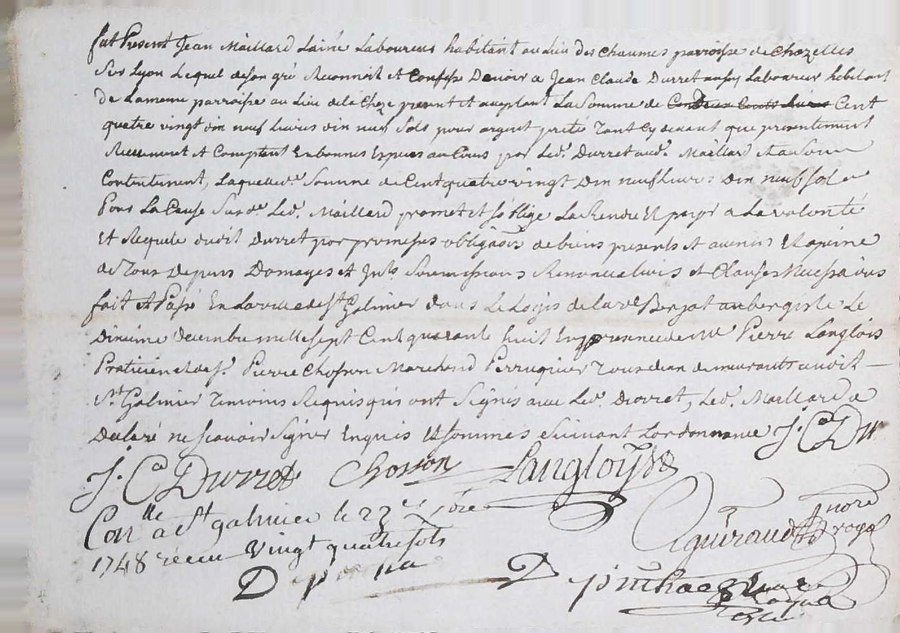 fut Present Jean Maillard Lainé Laboureur habitant au lieu des Chaumes parroisse de Chazelles
Sur Lyon Lequel de son gré Reconnoit et Confesse Devoir a Jean Claude Durret aussy Laboureur hebitant
de La meme parroisse au lieu de la present et aceptant La Somme de Cent
quatre vingt dix neuf livres dix neuf sols pour argent preté tant cy devant que presentement
Reellement et Comptant En bonnes Espèces au Cours par Led. Durret aud. Maillard
Contentement, Laquelle d. Somme de Cent quatre vingt dix neuf livres dix neuf sols
Pour La Cause Sus de. Led. Maillard promet et s'oblige La Rendre et payé a La volonté
Et Requete dudit Durret par promesses obligaõn de biens presents et avenir Et a peine
de Tous Depens Domages et Intts Soumissions Renonciations et Clauses Necessaires
fait et Passé En La ville de St Galmier dans Le Logis de la ve Berjat aubergiste Le
Dixième Decembre mille sept Cent quarante huit En presence de me Pierre Langlois
Praticien et de Sr. Pierre Chosson Marchand Perruquier Tous deux demeurants audit
St Galmier Temoins Requis qui ont Signés avec Led. Durret, Led. Maillard a
Declaré ne sçavoir Signer Enquis et sommes suivant Lordonnance J. C. Dur
J. C Durret Chosson Langloys
Con.lle a St galmier le 23e
1748 receu Vingt quatre sols
guiraud nore royal